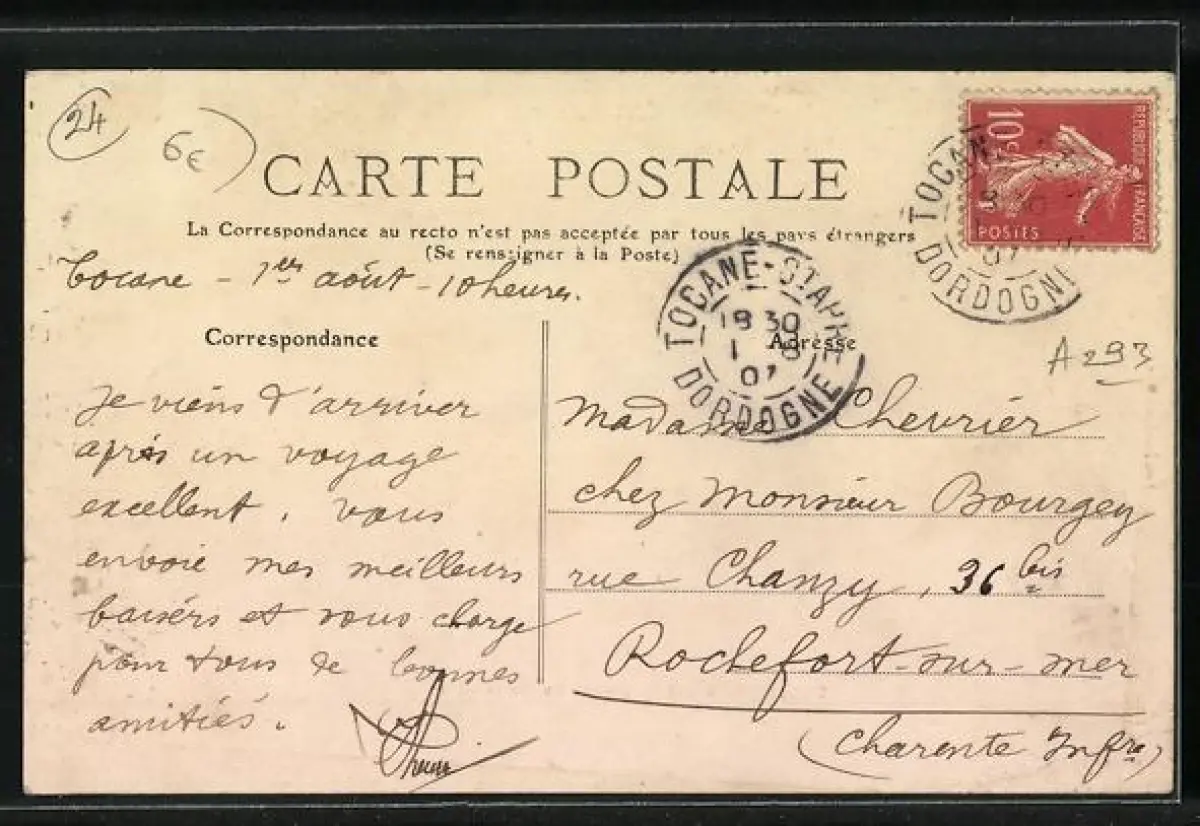 24
6€
CARTE POSTALE
La Correspondance au recto n'est pas acceptée par tous les pays étrangers
(Se renseigner à la Poste)
10c
RÉPUBLIQUE FRANÇAISE
POSTES
TOCANE
DORDOGNE
Tocane - 1er août - 10 heures.
TOCANE-ST APRE
18 30
1 8
07
DORDOGNE
Correspondance
Adresse
A293
Je viens d'arriver
après un voyage
excellent, vous
envoie mes meilleurs
baisers et vous charge
pour tous de bonnes
amitiés.
Madame Chevrier
chez Monsieur Bourgey
rue Chanzy, 36 bis
Rochefort-sur-mer
(Charente Infre)